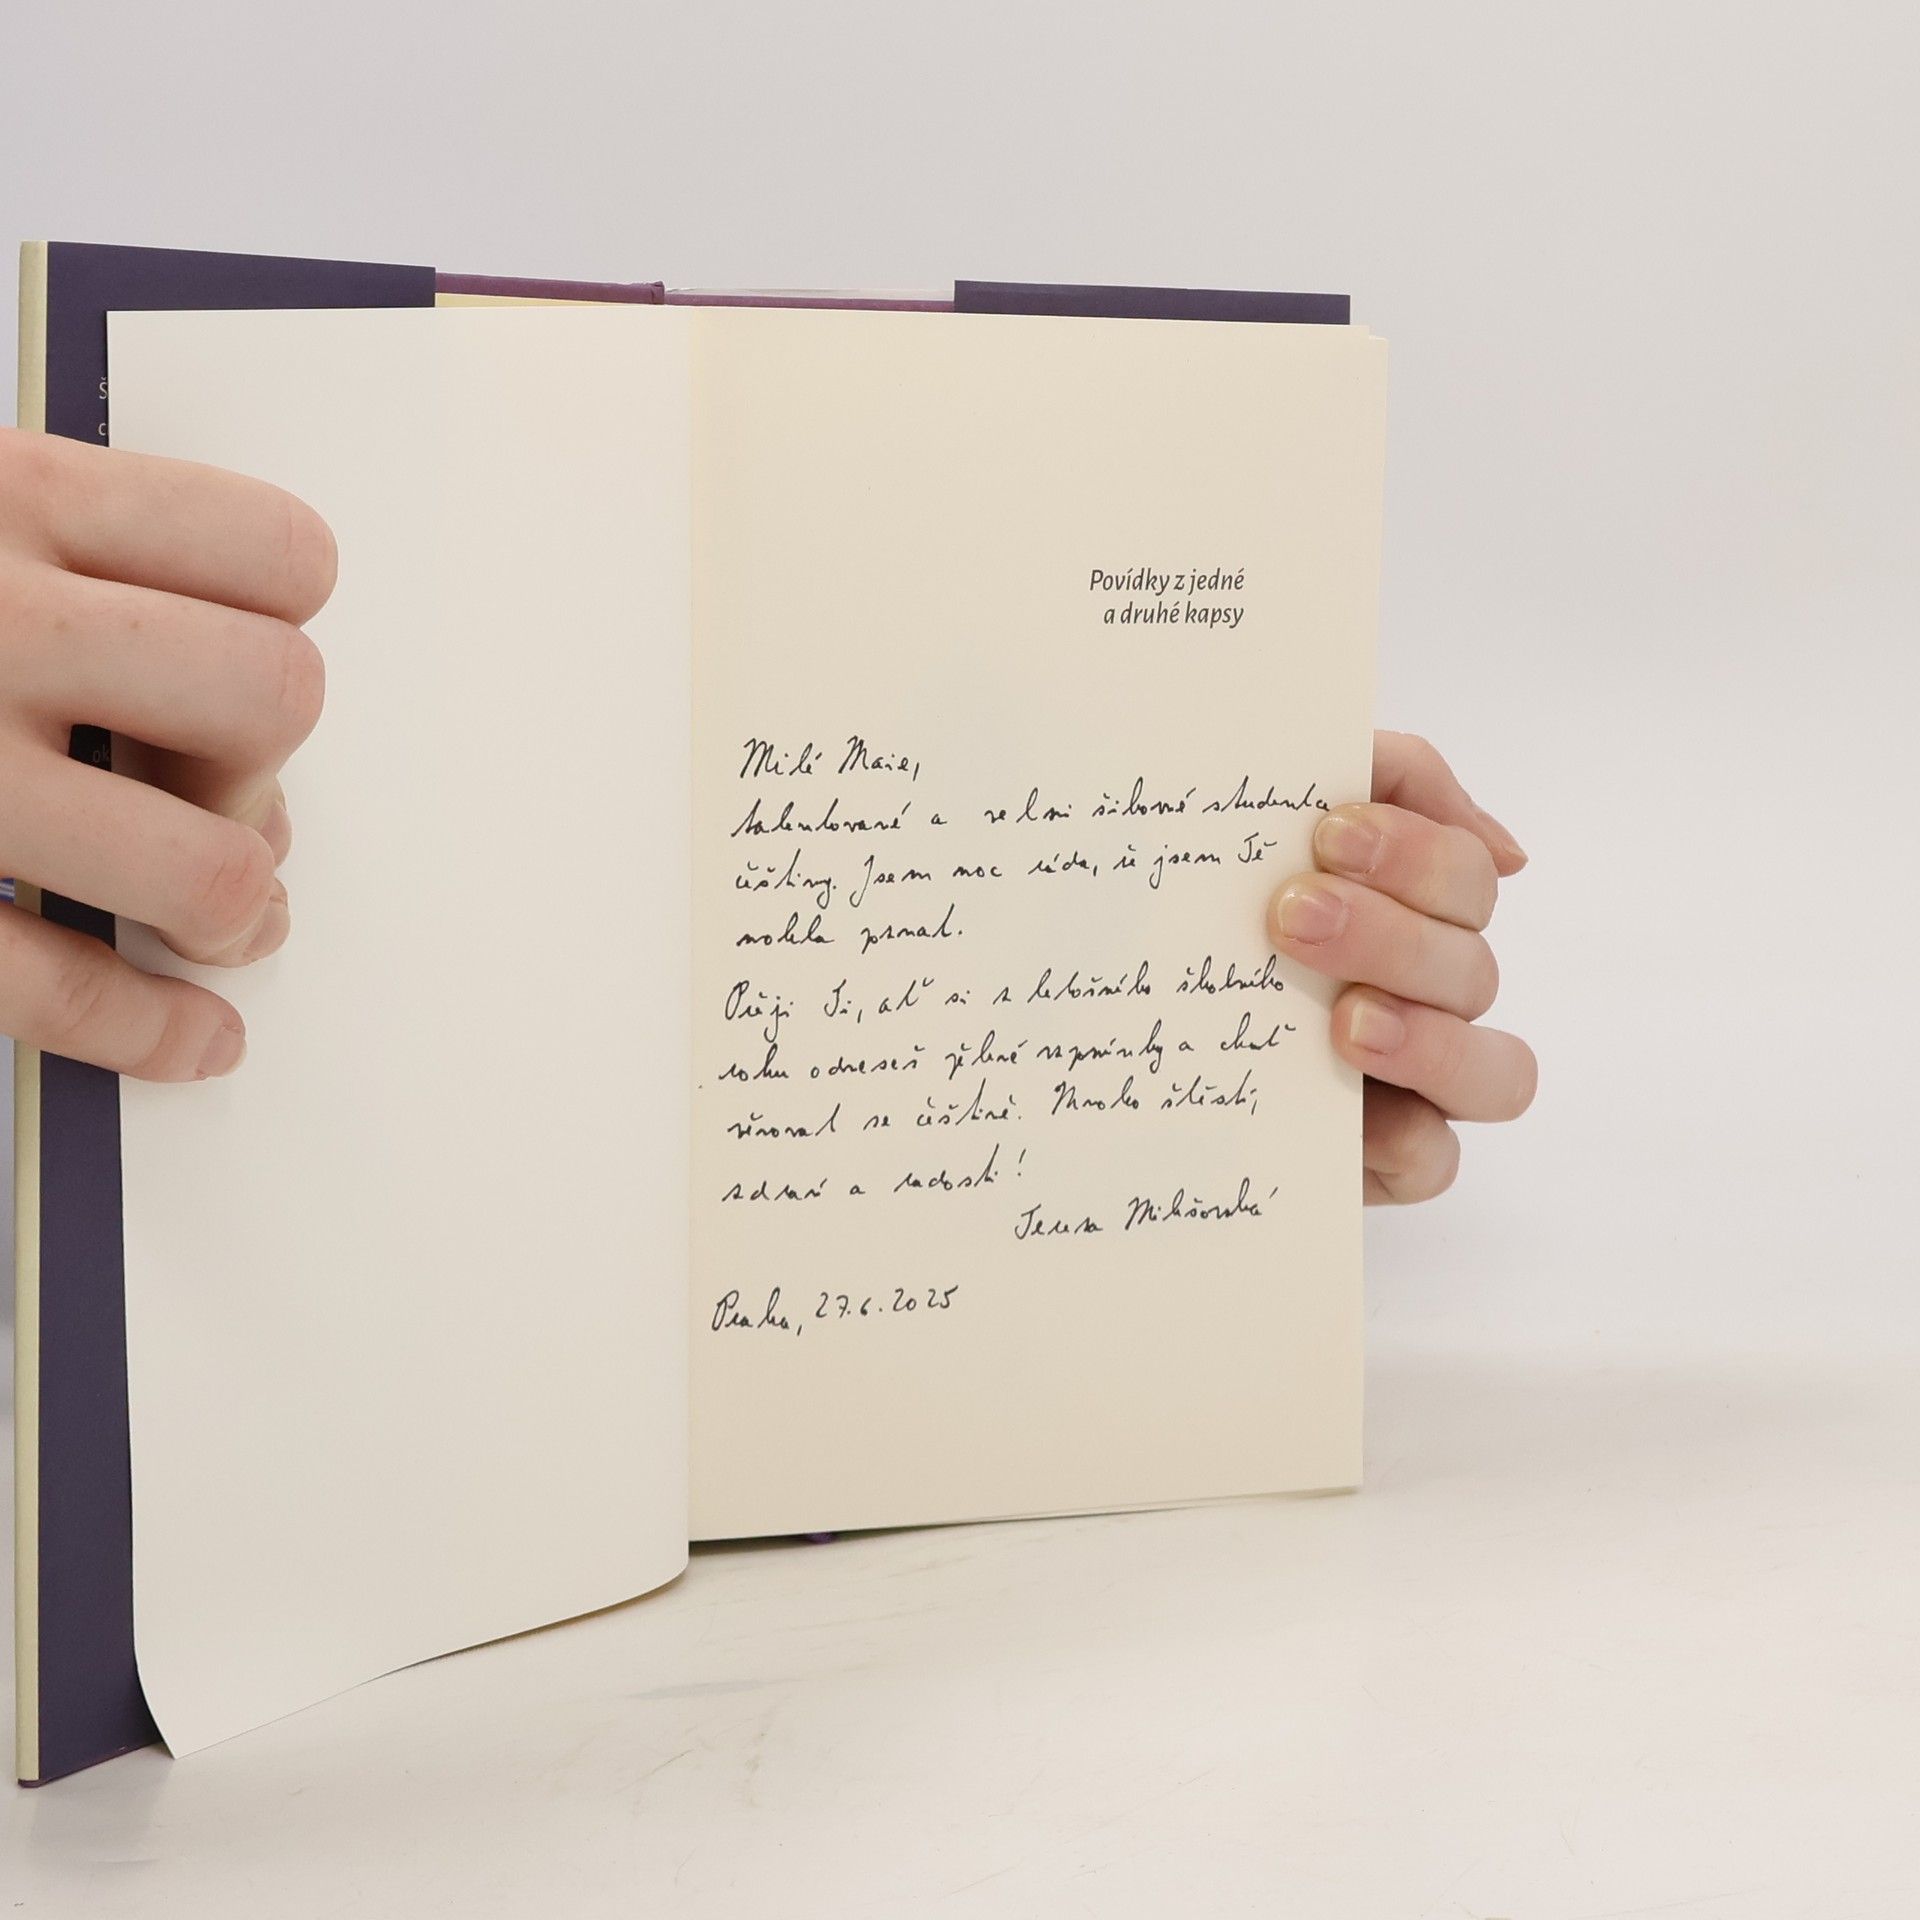 Š
c
ok
Povídky z jedné
a druhé kapsy
Milé Maie,
talentované a velmi šikovné studentce
češtiny. Jsem moc ráda, že jsem Tě
mohla poznat.
Přeji Ti, ať si z letošního školního
roku odneseš pěkné vzpomínky a chuť
věnovat se češtině. Mnoho štěstí,
zdraví a radosti!
Tereza
Praha, 27.6.2025